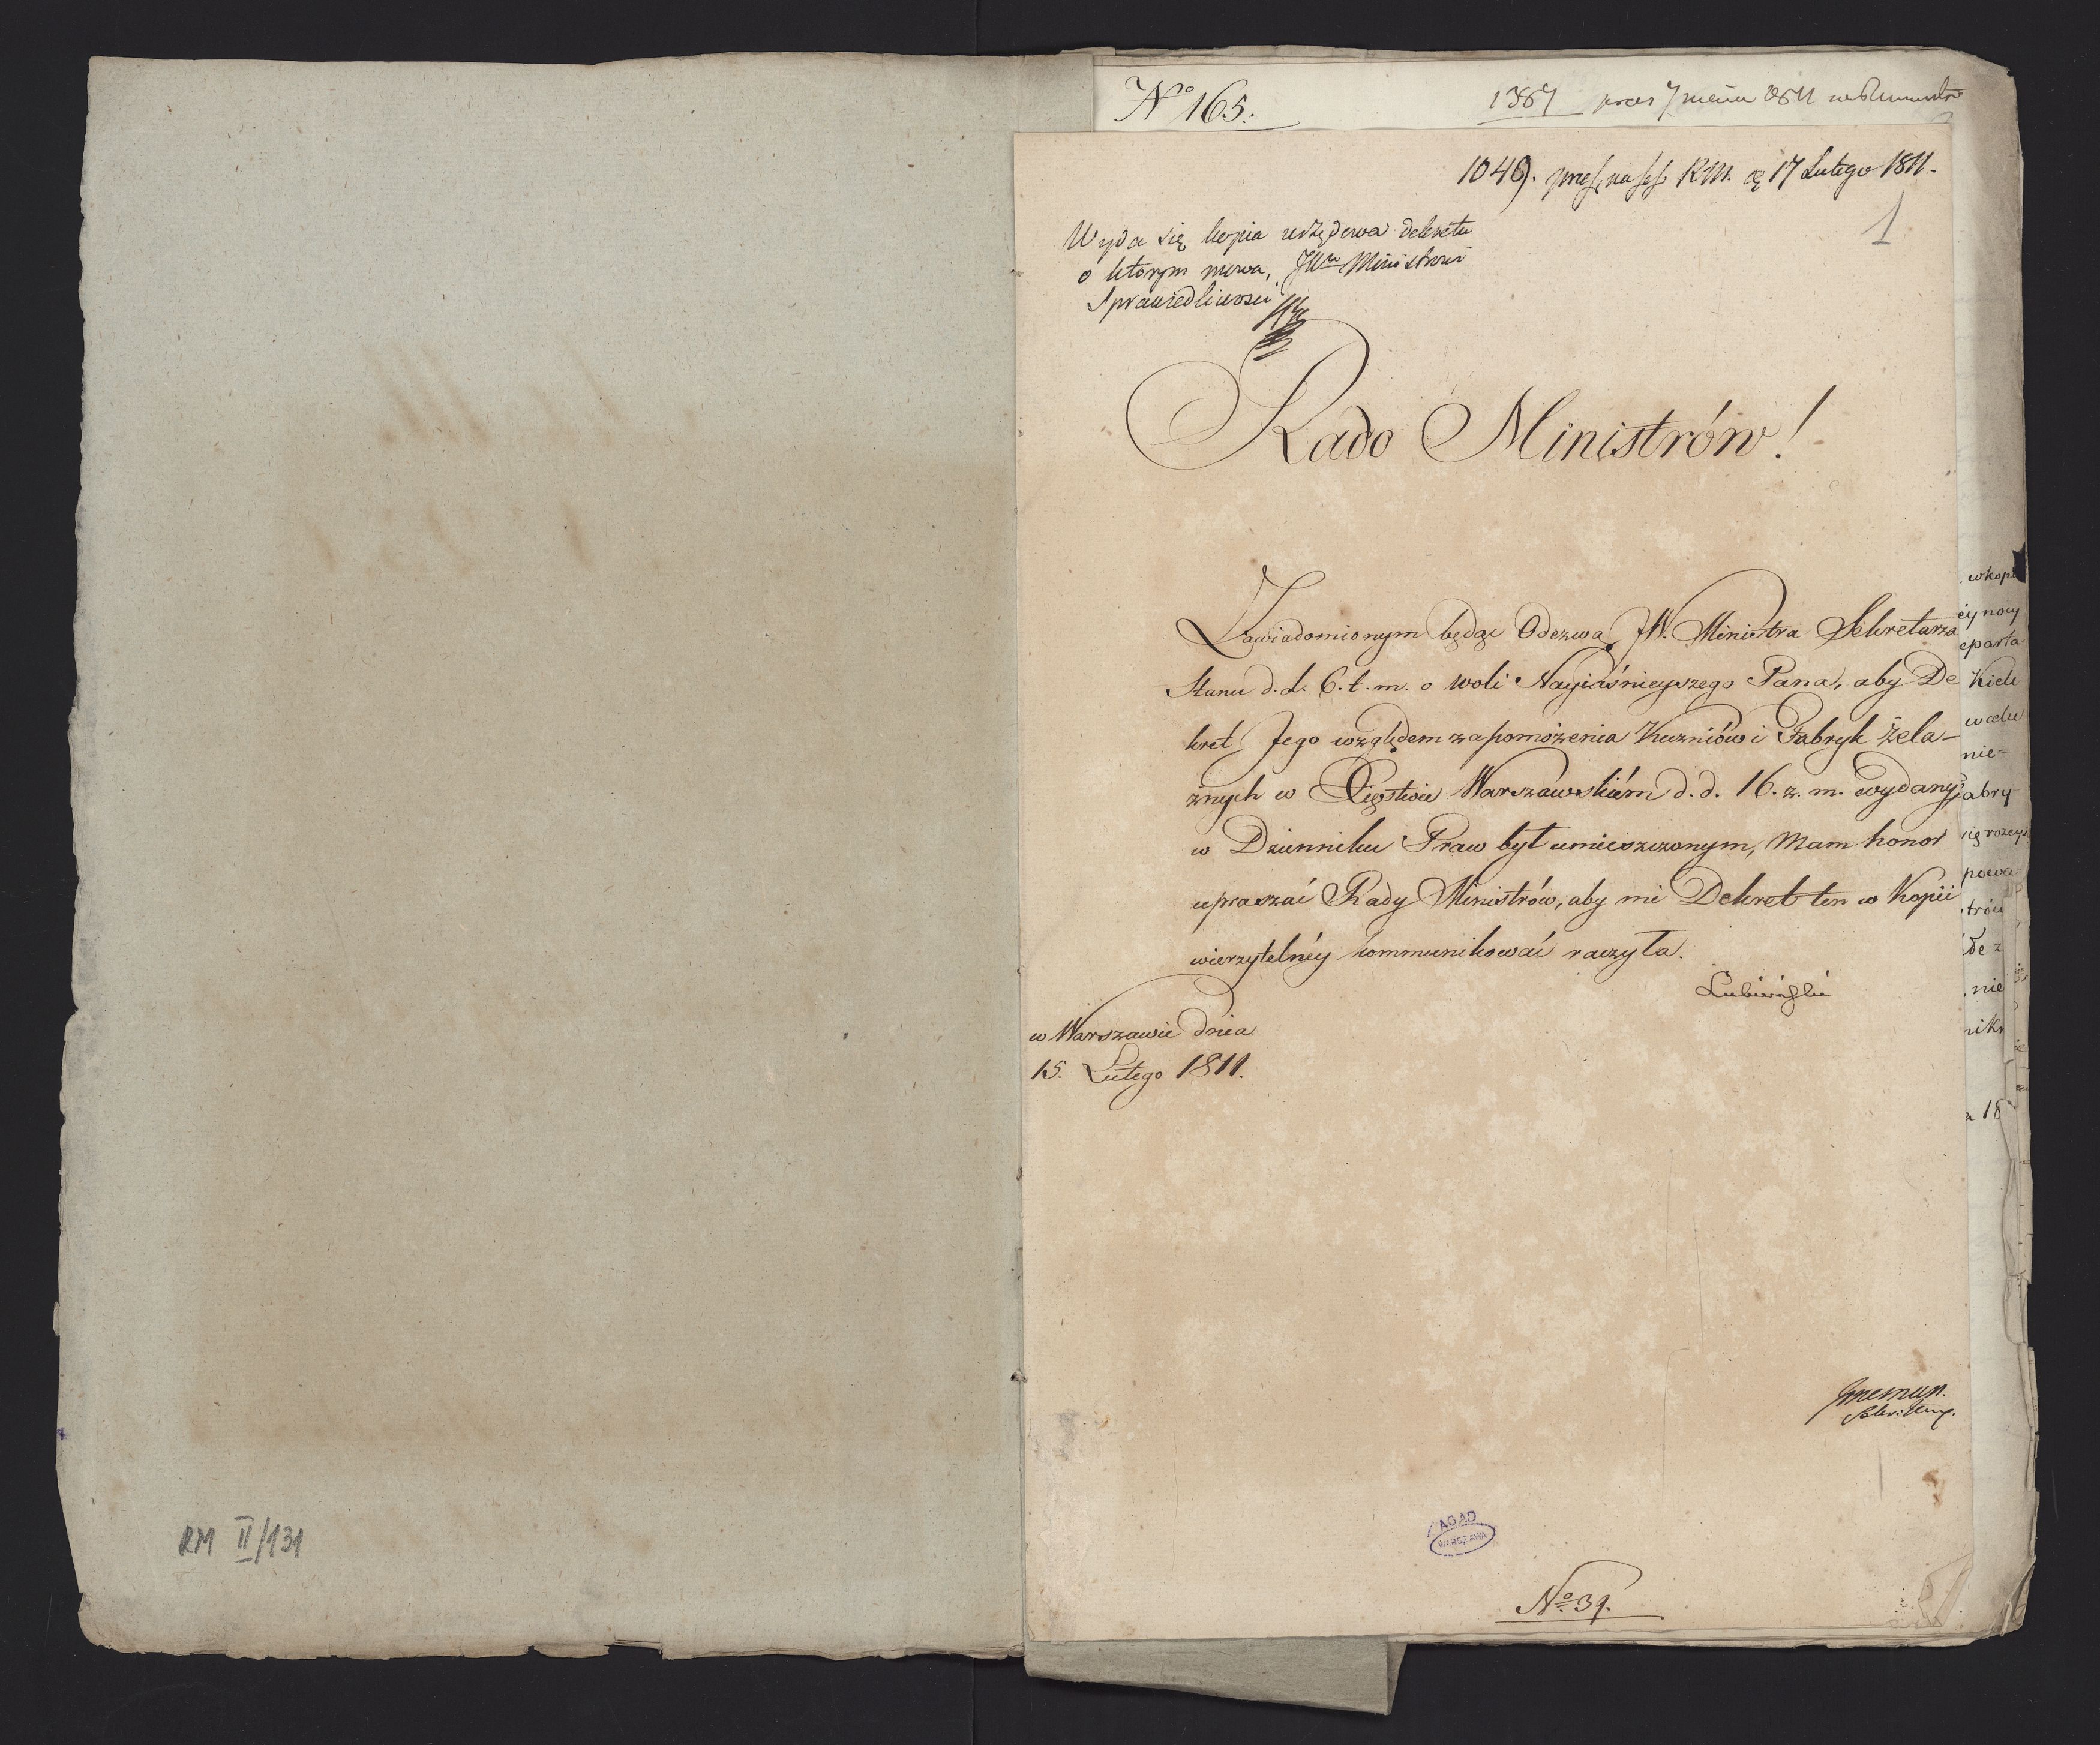 Nº 165.
1367
1049. pres. na ses. RM. d. 17 Lutego 1811.
1
Wyda się kopia urzędowa dekretu
o którym mowa, JWu Ministrowi
Sprawiedliwości
Rado Ministrów!
Zawiadomionym będąc Odezwą JW. Ministra Sekretarza
Stanu d. d. 6. t. m. o woli Nayiaśnieyszego Pana, aby De
kret Jego względem zapomożenia Kuzniów i Fabryk żela-
znych w Xięstwie Warszawskiém d. d. 16. z. m. wydany,
w Dzienniku Praw był umieszczonym, mam honor
upraszać Rady Ministrów, aby mi Dekret ten w Kopii
wierzytelnéy kommunikować raczyła.
Lubieński
w Warszawie dnia
15. Lutego 1811.
AGAD
WARSZAWA
Nº 39.
RM II/131